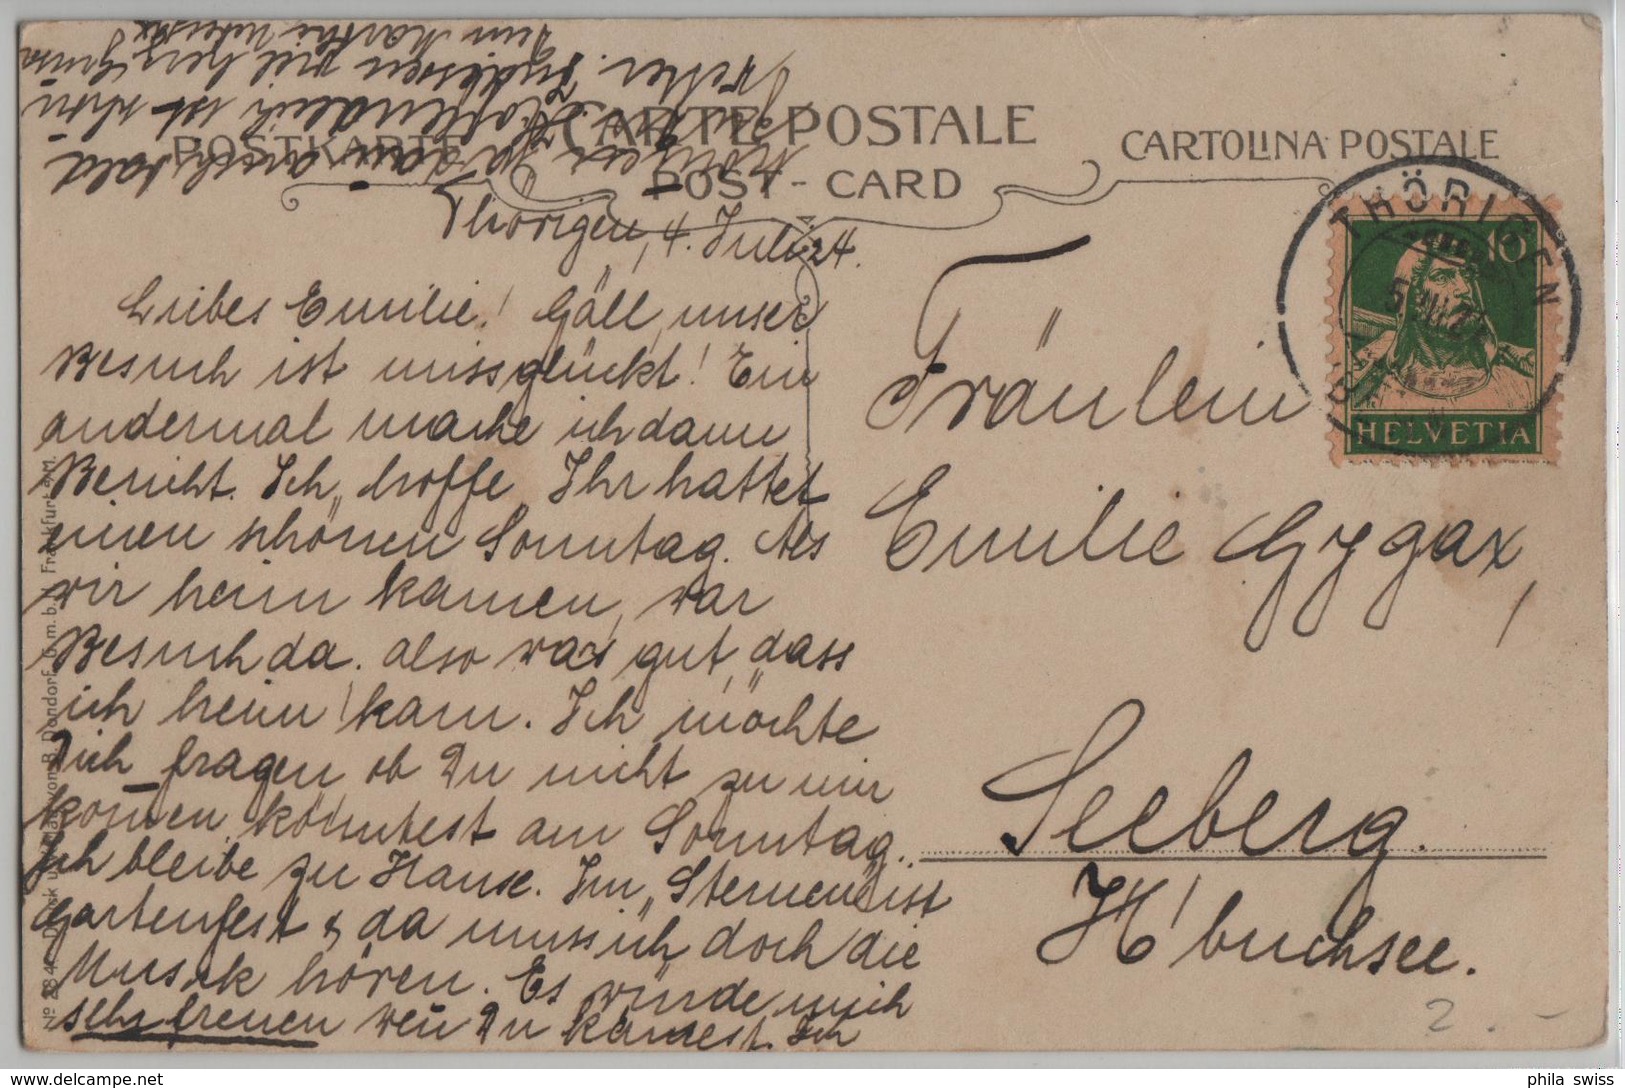 POSTKARTE
CARTE POSTALE
POST-CARD
CARTOLINA POSTALE
Thörigen, 4. Juli 24.
Liebes Emilie! Gäll, unser
Besuch ist missglückt! Ein
andermal mache ich dann
Bericht. Ich hoffe Ihr hattet
einen schönen Sonntag. Als
wir heim kamen, war
Besuch da. also war gut, dass
ich heim kam. Ich möchte
Dich fragen ob Du nicht zu mir
kom̄en könntest am Sonntag.
Ich bleibe zu Hause. Im „Sternen" ist
Gartenfest & da muss ich doch die
Musik hören. Es würde mich
sehr freuen wen̄ Du kämest. Im
ist schön
Indessen viel herz. Grüsse
Fräulein
Emilie Gygax,
Seeberg.
H'buchsee.
THÖRIGEN
10
HELVETIA
No 284 Druck u. Verlag von B. Dondorf G.m.b.H. Frankfurt a/M.
2.-
phila swiss